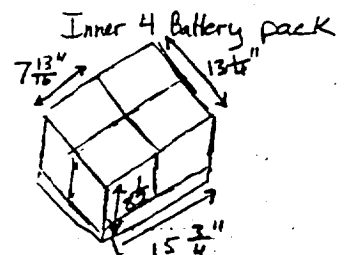 Inner 4 Battery pack
7 13/16"
13 1/4"
15 3/4"